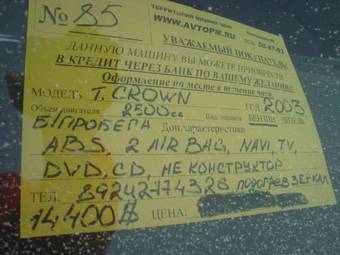 № 85
ТЕРРИТОРИЯ НИЗКИХ ЦЕН
WWW.AVTOPM.RU
УВАЖАЕМЫЙ ПОКУПАТЕЛЬ
ДАННУЮ МАШИНУ ВЫ МОЖЕТЕ ПРИОБРЕСТИ
В КРЕДИТ ЧЕРЕЗ БАНК ПО ВАШЕМУ ЖЕЛАНИЮ
Оформление на месте в течении часа
МОДЕЛЬ T. CROWN ГОД 2003
Объем двигателя 2500cc Вид топлива БЕНЗИН ДИЗЕЛЬ
Б/ПРОБЕГА Доп.характеристики
ABS, 2 AIR BAG, NAVI, TV,
DVD, CD, НЕ КОНСТРУКТОР
ТЕЛ. 89242774328 ПОДОГРЕВ ЗЕРКАЛ
14,400$ ЦЕНА: